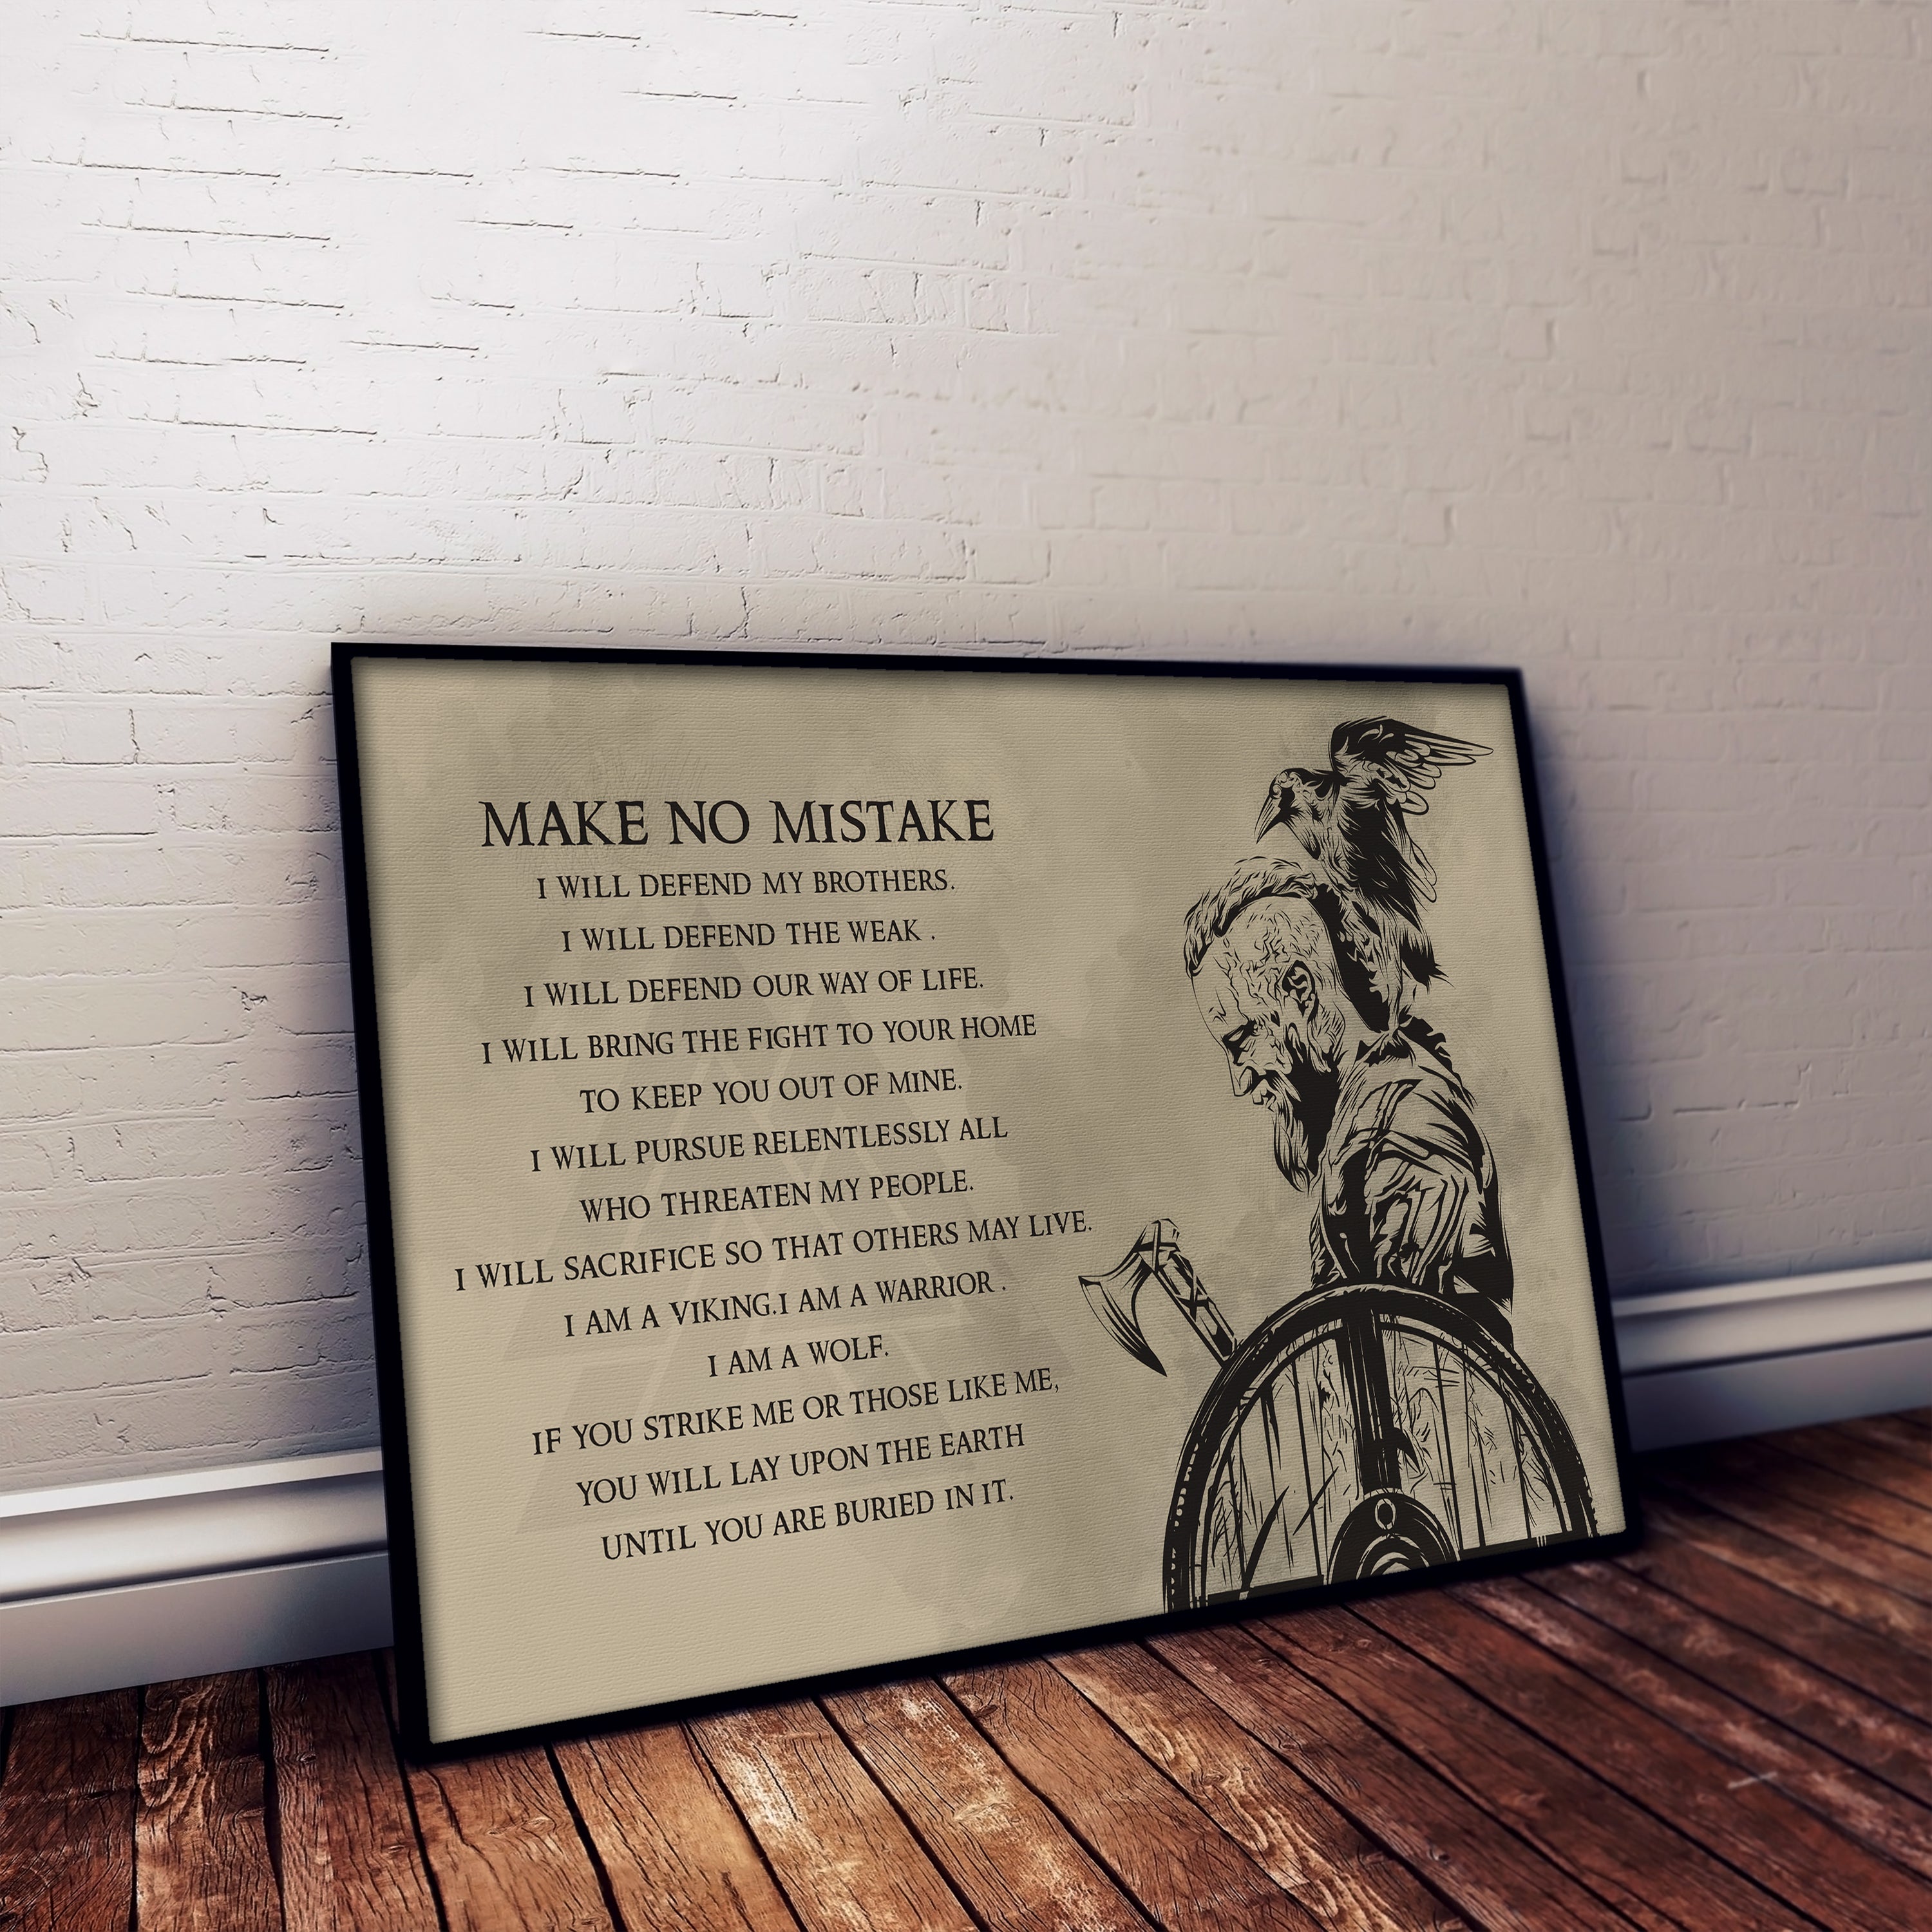 MAKE NO MISTAKE
I WILL DEFEND MY BROTHERS.
I WILL DEFEND THE WEAK .
I WILL DEFEND OUR WAY OF LIFE.
I WILL BRING THE FIGHT TO YOUR HOME
TO KEEP YOU OUT OF MINE.
I WILL PURSUE RELENTLESSLY ALL
WHO THREATEN MY PEOPLE.
I WILL SACRIFICE SO THAT OTHERS MAY LIVE.
I AM A VIKING.I AM A WARRIOR .
I AM A WOLF.
IF YOU STRIKE ME OR THOSE LIKE ME,
YOU WILL LAY UPON THE EARTH
UNTIL YOU ARE BURIED IN IT.